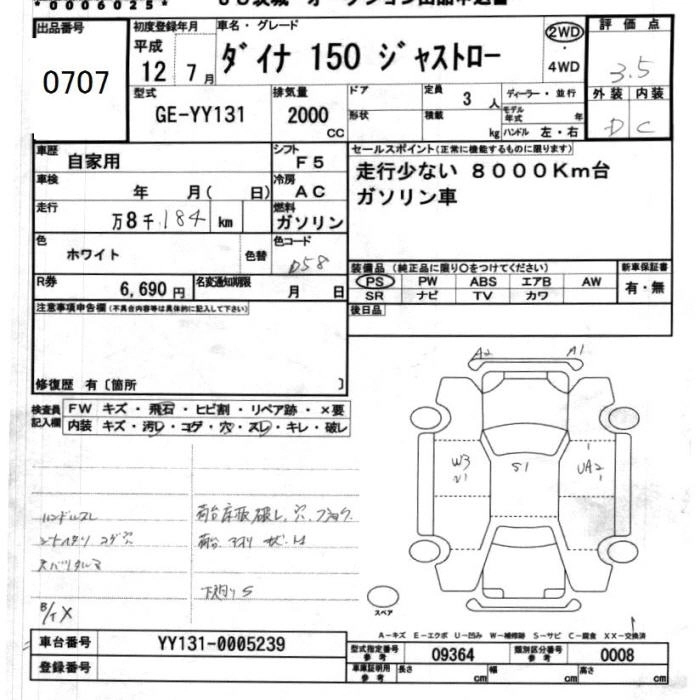 *0006025*
出品番号
0707
初度登録年月
平成
12 7月
車名・グレード
ダイナ 150 ジャストロー
2WD
・
4WD
評価点
3.5
外装 内装
D C
型式
GE-YY131
排気量
2000
CC
ドア
形状
定員
3 人
積載
kg
ディーラー・並行
モデル年式 年
ハンドル 左・右
車歴
自家用
シフト
F5
車検
年 月( 日)
冷房
AC
走行
万8千184 km
燃料
ガソリン
色
ホワイト
色替
色コード
058
R券
6,690円
名変通知期限
月 日
セールスポイント(正常に機能するものに限ります)
走行少ない 8000Km台
ガソリン車
装備品(純正品に限り○をつけてください)
PS PW ABS エアB AW
SR ナビ TV カワ
新車保証書
有・無
後日品
注意事項申告欄(不具合内容等は具体的に記入して下さい)
修復歴 有〔箇所 〕
検査員記入欄
FW キズ・飛石・ヒビ割・リペア跡・×要
内装 キズ・汚レ・コゲ・穴・スレ・キレ・破レ
A2 A1
W3 S1 UA2
ハンドルスレ
荷台床板破レ、穴、
下廻りS
スペア
A-キズ E-エクボ U-凹み W-補修跡 S-サビ C-腐食 XX-交換済
車台番号
YY131-0005239
登録番号
型式指定番号
参考
09364
類別区分番号
参考
0008
車庫証明用
参考
長さ cm
幅 cm
高さ cm